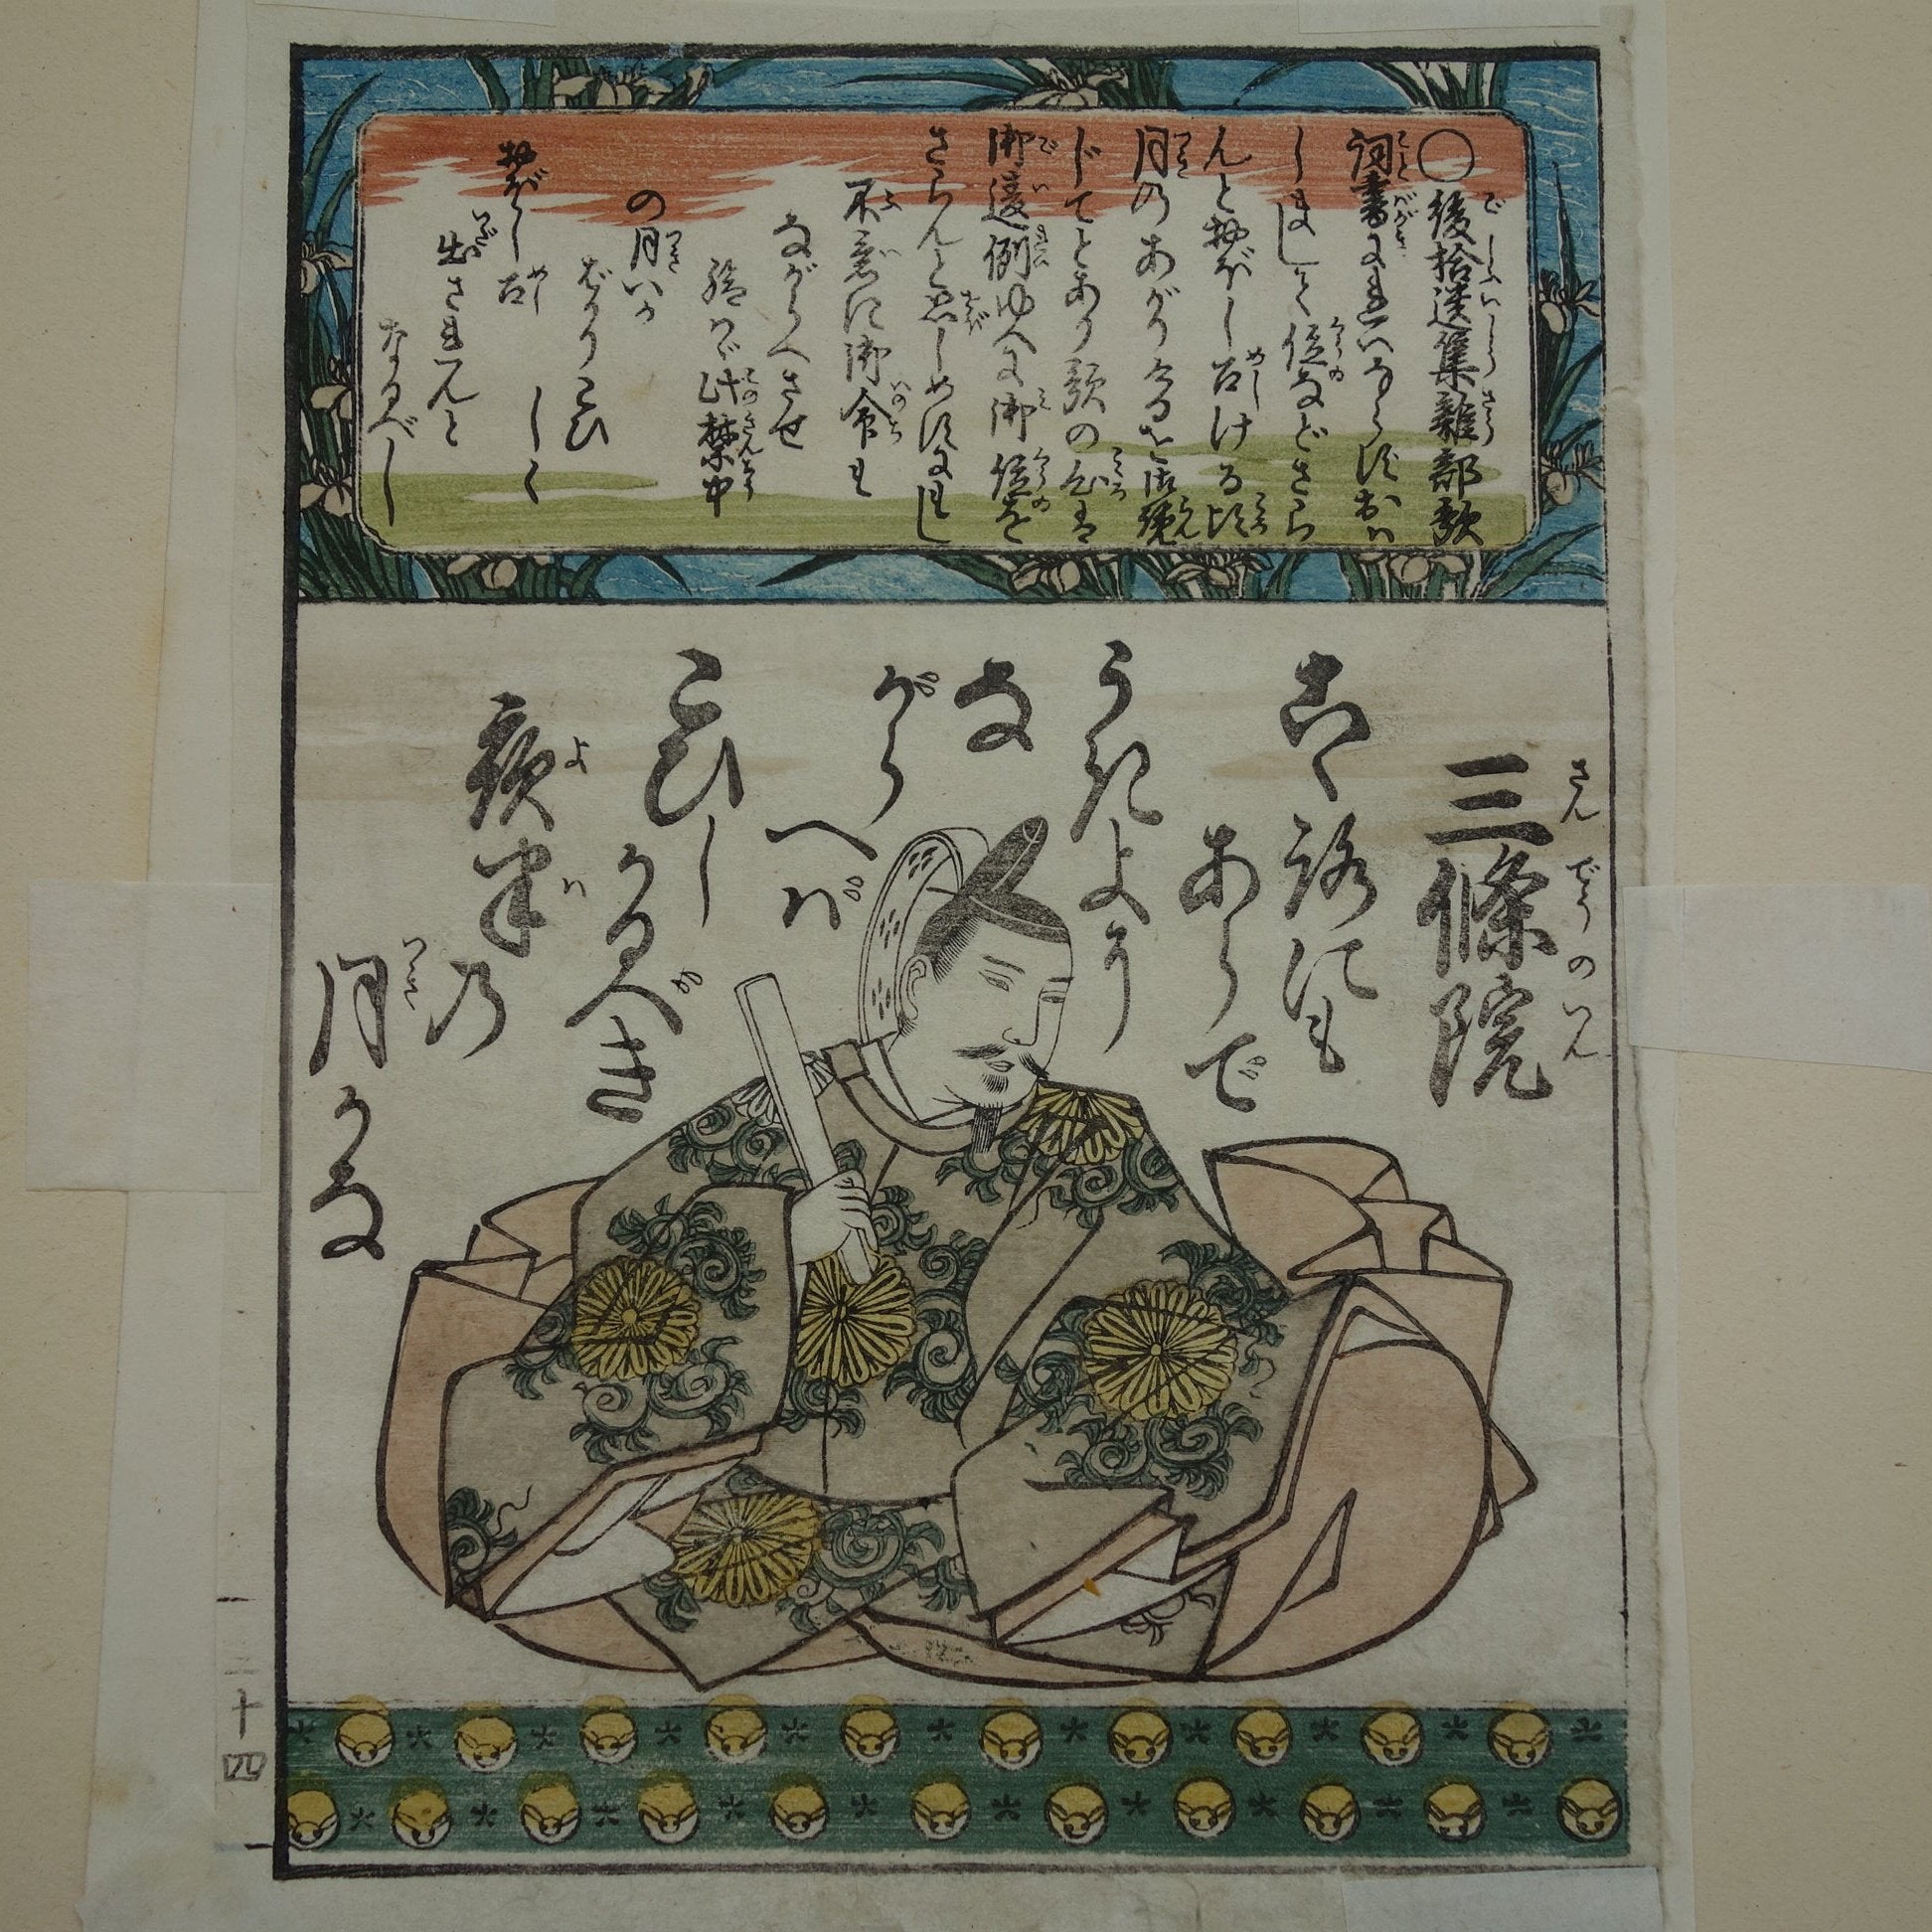 ○後拾遺集雑部歌
詞書に
しまして位などさら
んとおぼし召ける比
月のあかりけるを御覧
じてとあり歌の心は
御違例ゆへに御位を
さらんと思しめすに
不意に御命も
ながらへさせ
給はゞ此禁中
の月いか
ばかりこひ
しく
おぼし召
出されんと
なるべし
三條院
さんでうのいん
こゝろにも
あらで
うきよに
な
がら
へば
こひし
かるべき
夜半の
月かな
三十四